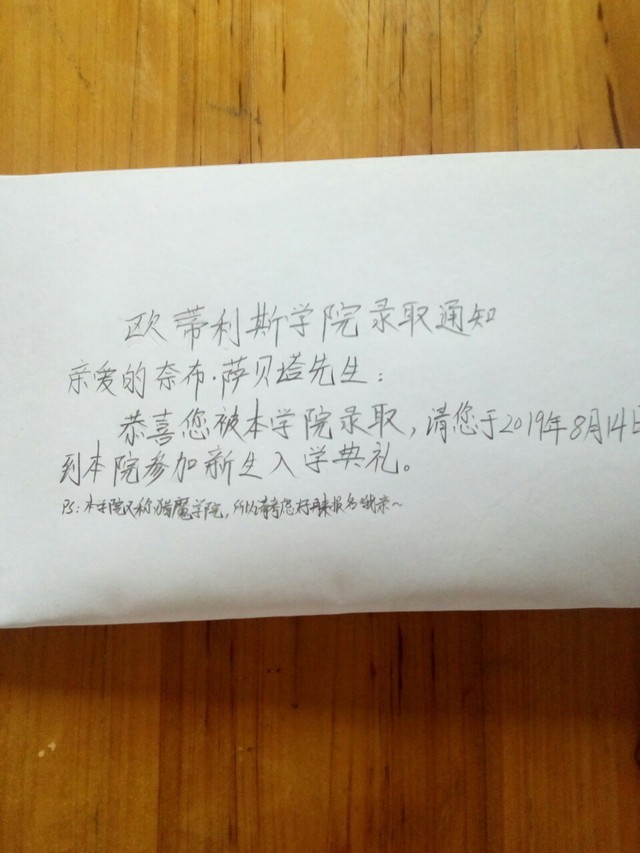 欧蒂利斯学院录取通知
亲爱的奈布·萨贝塔先生：
恭喜您被本学院录取，请您于2019年8月14日
到本院参加新生入学典礼。
PS：本学院又称猎魔学院，所以请考虑好再来报名哦亲～